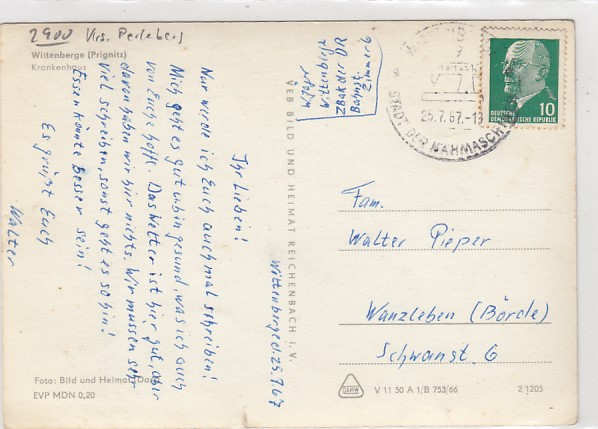 2900 Krs. Perleberg
Wittenberge (Prignitz)
Krankenhaus
W. Pieper
Wittenberge
ZBak der DR
Bahnst.
Zimmer 6
STADT DER NÄHMASCH
25.7.67.-18
10
DEUTSCHE
DEMOKRATISCHE REPUBLIK
VEB BILD UND HEIMAT REICHENBACH I. V.
Wittenberge d. 25.7.67
Ihr Lieben!
Nur würde ich Euch auch mal schreiben!
Mich geht es gut u. bin gesund was ich auch
von Euch hoffe. Das Wetter ist hier gut, aber
davon haben wir hier nichts. Wir müssen sehr
viel schreiben, sonst geht es so hin!
Essen könnte Besser sein!
Es grüßt Euch
Walter
Fam.
Walter Pieper
Wanzleben (Börde)
Schwanst. 6
Foto: Bild und Heimat
EVP MDN 0,20
V 11 50 A 1/B 753/66
2/1205